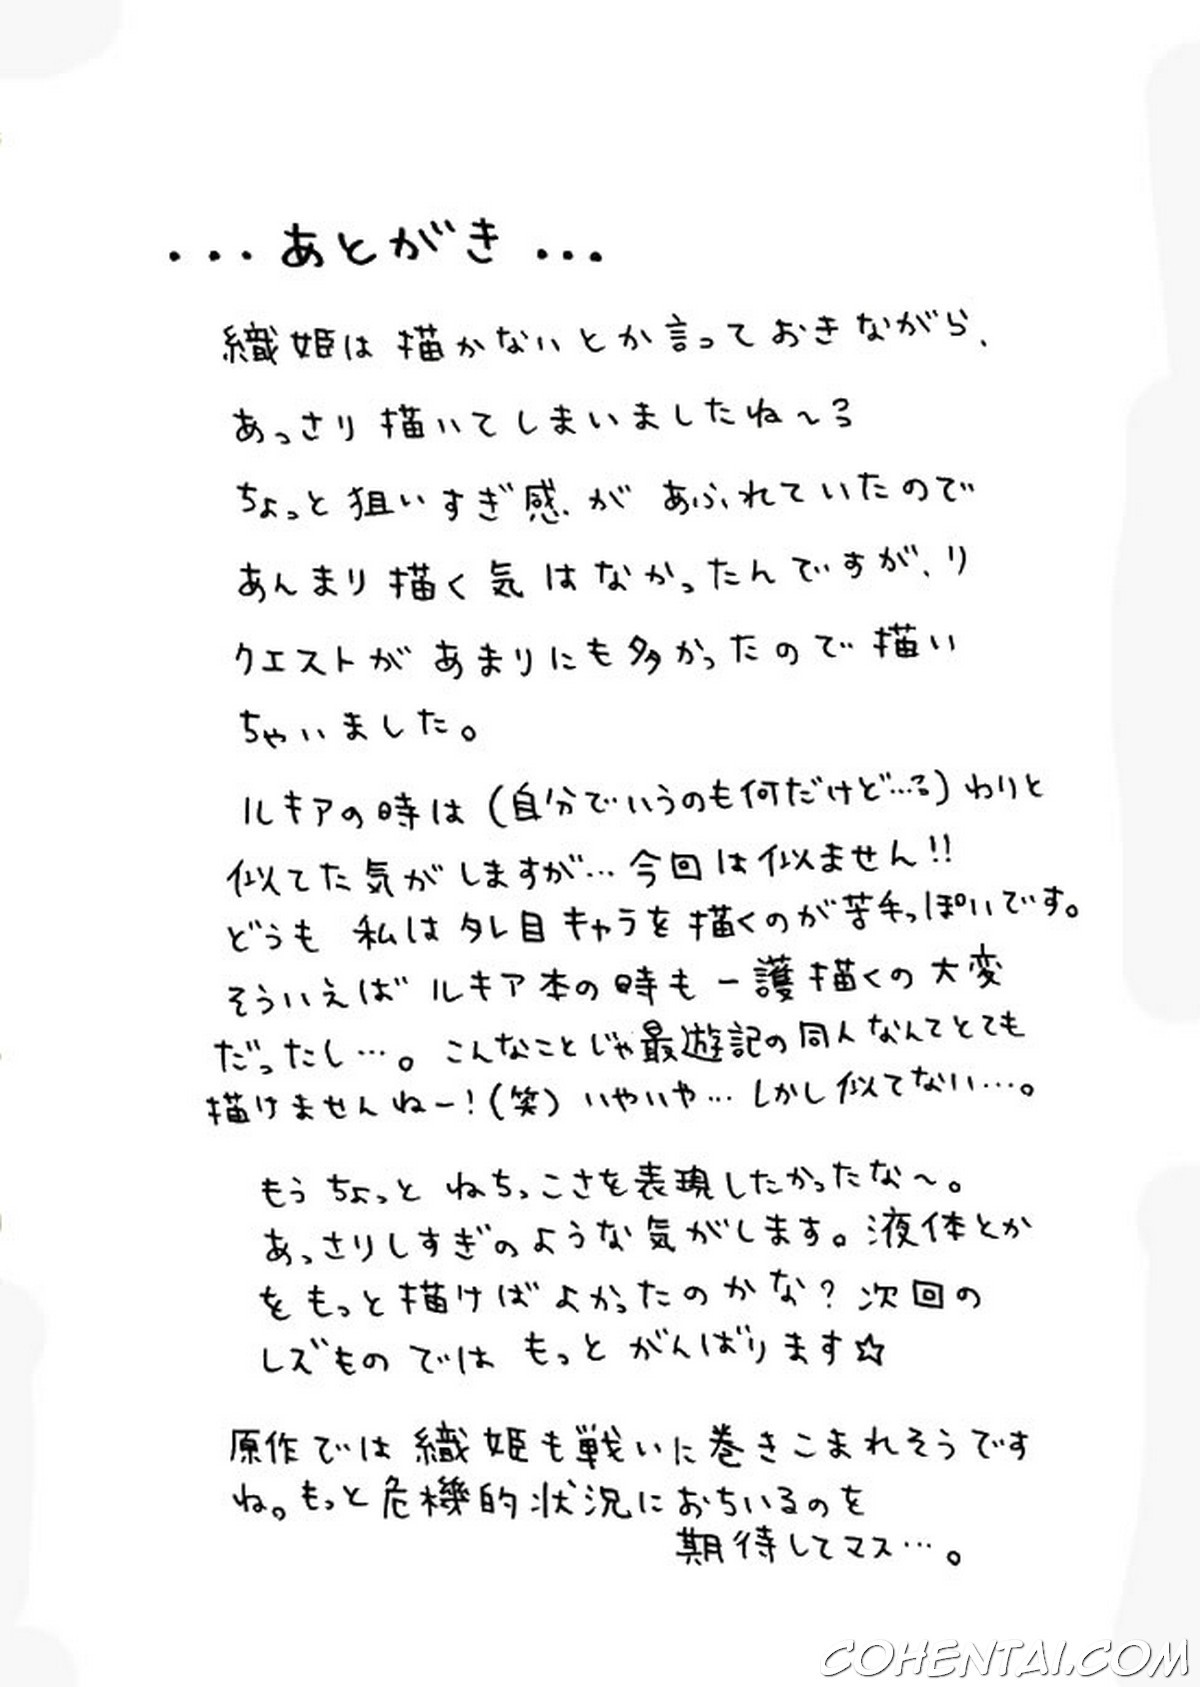 ・・・あとがき・・・
織姫は描かないとか言っておきながら、
あっさり描いてしまいましたね～ろ
ちょっと狙いすぎ感があふれていたので
あんまり描く気はなかったんですが、リ
クエストがあまりにも多かったので描い
ちゃいました。
ルキアの時は(自分でいうのも何だけど…ろ)わりと
似てた気がしますが…今回は似ません!!
どうも私はタレ目キャラを描くのが苦手っぽいです。
そういえばルキア本の時も一護描くの大変
だったし…。こんなことじゃ最遊記の同人なんてとても
描けませんねー!(笑)いやいや…しかし似てない…。
もうちょっとねちっこさを表現したかったな～。
あっさりしすぎのような気がします。液体とか
をもっと描けばよかったのかな?次回の
レズものではもっとがんばります☆
原作では織姫も戦いに巻きこまれそうです
ね。もっと危機的状況におちいるのを
期待してマス…。
COHENTAI.COM